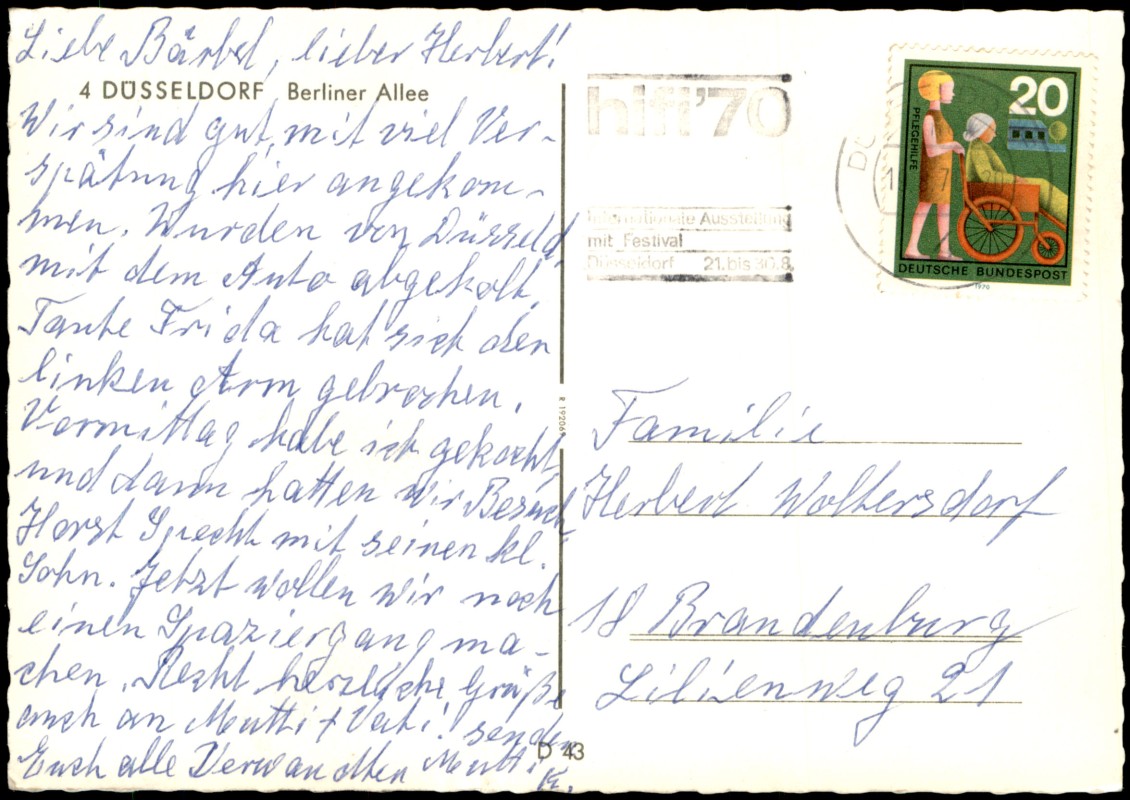 Liebe Bärbel, lieber Herbert!
4 DÜSSELDORF Berliner Allee
Wir sind gut, mit viel Ver-
spätung hier angekom-
men. Wurden von Düsseld.
mit dem Auto abgeholt.
Tante Frida hat sich den
linken Arm gebrochen.
Vormittag habe ich gekocht,
und dann hatten wir Besuch
Horst Specht mit seinen kl.
Sohn. Jetzt wollen wir noch
einen Spaziergang ma-
chen. Recht herzliche Grüße
auch an Mutti + Vati! senden
Euch alle Verwandten Mutti
K.
D 43
R 19206
hifi'70
Internationale Ausstellung
mit Festival
Düsseldorf 21. bis 30.8.
20
PFLEGEHILFE
DEUTSCHE BUNDESPOST
1970
Familie
Herbert Woltersdorf
18 Brandenburg
Lilienweg 21